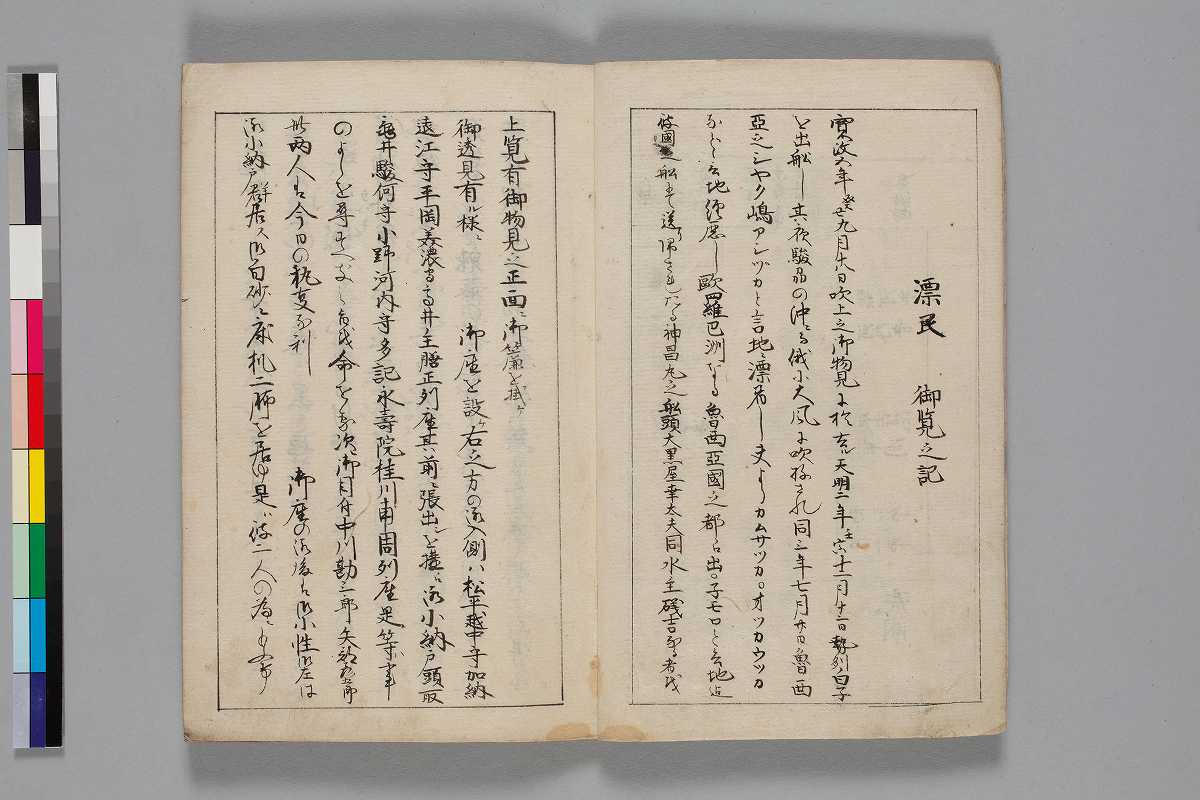 漂民 御覧之記
寛政五年癸丑九月十八日吹上之御物見に於去ル天明二年壬寅十二月十三日勢州白子
を出船し其夜駿州の沖にて俄に大風に吹放され同三年七月廿日魯西
亞之シヤク嶋アンヅカと言地に漂着し夫よりカムサツカ。オツカウツカ
などゝ云地経歴し歐羅巴洲なる魯西亞國之都に出。子モロと云地迄
彼國之船にて送り帰されたる神昌丸之船頭大黒屋幸太夫同水主磯吉なる者を
上覧有御物見之正面に御簾を掛ケ
御透見有ル様に 御座を設ケ右之方の御入側ハ松平越中守加納
遠江守平岡美濃守高井主膳正列座其前に張出しを構に御小納戸頭取
亀井駿河守小野河内守多記永壽院桂川甫周列座是等ハ事
のよしを尋すへきとの命を蒙次に御目付中川勘三郎矢部
此両人は今日の執支なり 御座の御後は御小性
御小納戸群居ス御白砂に床机二脚を居ゆ是ハ彼二人の為